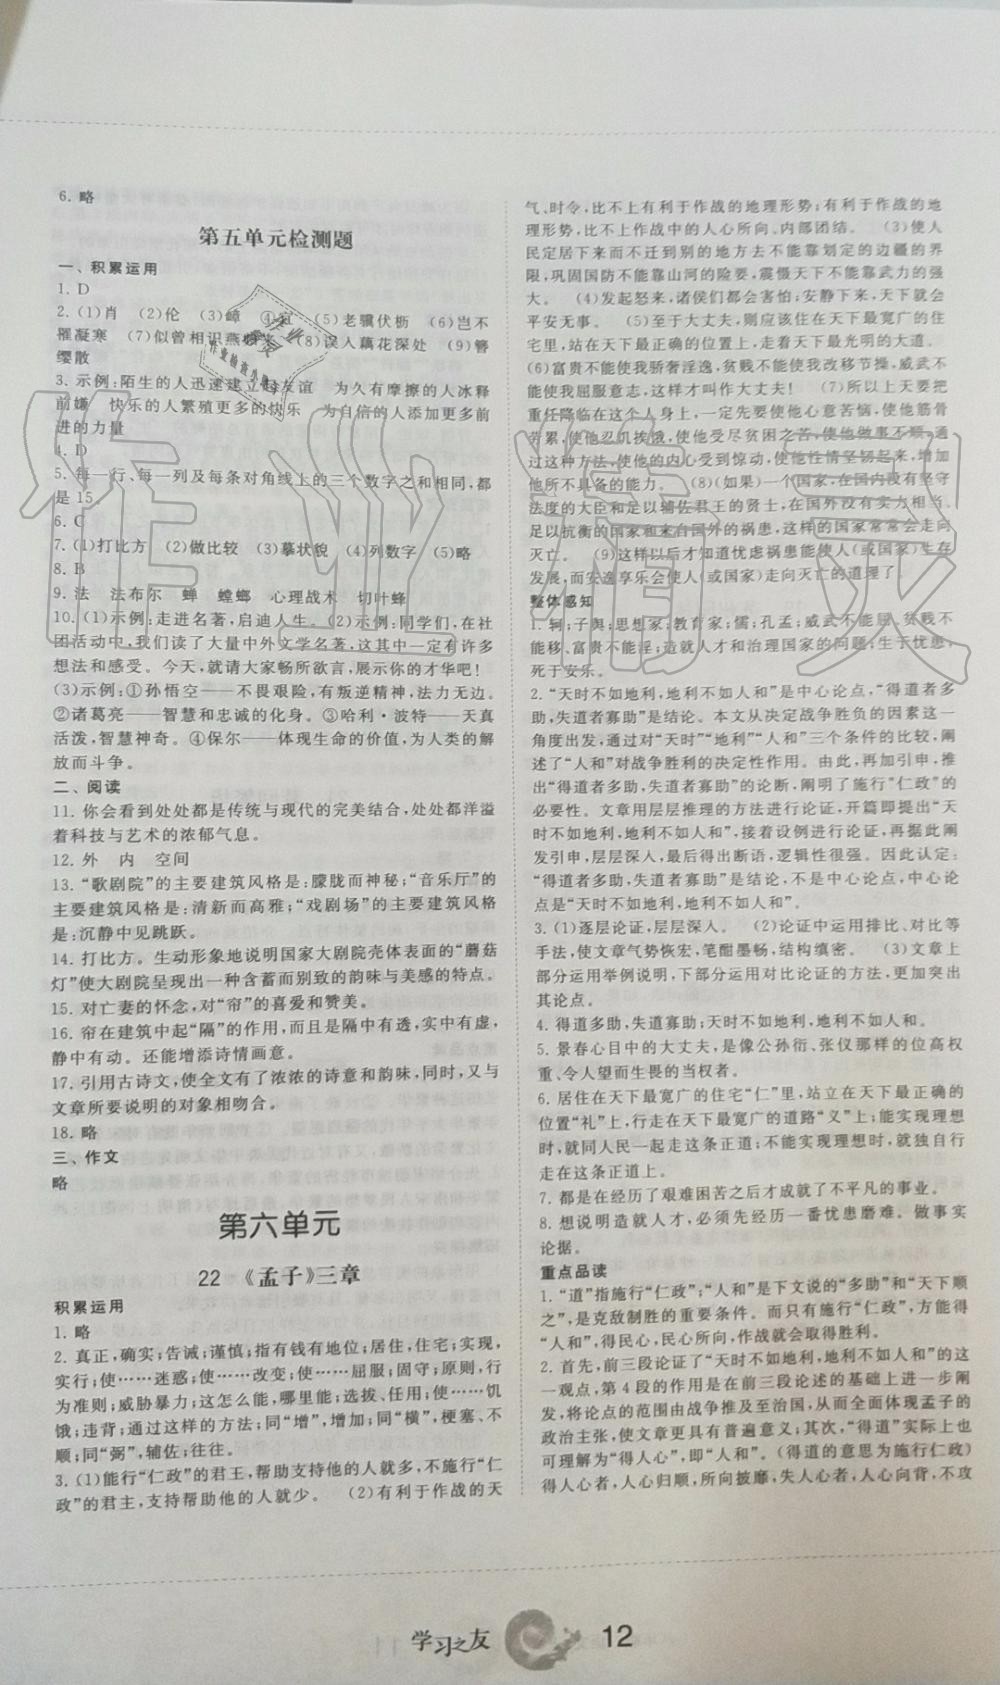 6. 略
第五单元检测题
一、积累运用
1. D
2. (1)肖 (2)伦 (3)嶂 ④宣 (5)老骥伏枥 (6)岂不
罹凝寒 (7)似曾相识燕归来 (8)误入藕花深处 (9)簪
缨散
3. 示例:陌生的人迅速建立起友谊 为久有摩擦的人冰释
前嫌 快乐的人繁殖更多的快乐 为自信的人添加更多前
进的力量
4. D
5. 每一行、每一列及每条对角线上的三个数字之和相同,都
是 15
6. C
7. (1)打比方 (2)做比较 (3)摹状貌 (4)列数字 (5)略
8. B
9. 法 法布尔 蝉 螳螂 心理战术 切叶蜂
10. (1)示例:走进名著,启迪人生。(2)示例:同学们,在社
团活动中,我们读了大量中外文学名著,这其中一定有许多
想法和感受。今天,就请大家畅所欲言,展示你的才华吧!
(3)示例:①孙悟空——不畏艰险,有叛逆精神,法力无边。
②诸葛亮——智慧和忠诚的化身。③哈利·波特——天真
活泼,智慧神奇。④保尔——体现生命的价值,为人类的解
放而斗争。
二、阅读
11. 你会看到处处都是传统与现代的完美结合,处处都洋溢
着科技与艺术的浓郁气息。
12. 外 内 空间
13. “歌剧院”的主要建筑风格是:朦胧而神秘;“音乐厅”的
主要建筑风格是:清新而高雅;“戏剧场”的主要建筑风格
是:沉静中见跳跃。
14. 打比方。生动形象地说明国家大剧院壳体表面的“蘑菇
灯”使大剧院呈现出一种含蓄而别致的韵味与美感的特点。
15. 对亡妻的怀念,对“帘”的喜爱和赞美。
16. 帘在建筑中起“隔”的作用,而且是隔中有透,实中有虚,
静中有动。还能增添诗情画意。
17. 引用古诗文,使全文有了浓浓的诗意和韵味,同时,又与
文章所要说明的对象相吻合。
18. 略
三、作文
略
第六单元
22 《孟子》三章
积累运用
1. 略
2. 真正,确实;告诫;谨慎;指有钱有地位;居住,住宅;实现,
实行;使……迷惑;使……改变;使……屈服;固守;原则,行
为准则;威胁暴力;这怎么能,哪里能;选拔、任用;使……饥
饿;违背;通过这样的方法;同“增”,增加;同“横”,梗塞、不
顺;同“弼”,辅佐;往往。
3. (1)能行“仁政”的君王,帮助支持他的人就多,不施行“仁
政”的君主,支持帮助他的人就少。 (2)有利于作战的天
气、时令,比不上有利于作战的地理形势;有利于作战的地
理形势,比不上作战中的人心所向、内部团结。 (3)使人
民定居下来而不迁到别的地方去不能靠划定的边疆的界
限,巩固国防不能靠山河的险要,震慑天下不能靠武力的强
大。 (4)发起怒来,诸侯们都会害怕;安静下来,天下就会
平安无事。 (5)至于大丈夫,则应该住在天下最宽广的住
宅里,站在天下最正确的位置上,走着天下最光明的大道。
(6)富贵不能使我骄奢淫逸,贫贱不能使我改移节操,威武不
能使我屈服意志,这样才叫作大丈夫! (7)所以上天要把
重任降临在这个人身上,一定先要使他心意苦恼,使他筋骨
劳累,使他忍饥挨饿,使他受尽贫困之苦,使他做事不顺,通
过这种方法,使他的内心受到惊动,使他性情坚韧起来,增加
他所不具备的能力。 (8)(如果)一个国家,在国内没有坚守
法度的大臣和足以辅佐君王的贤士,在国外没有实力相当、
足以抗衡的国家和来自国外的祸患,这样的国家常常会走向
灭亡。 (9)这样以后才知道忧虑祸患能使人(或国家)生存
发展,而安逸享乐会使人(或国家)走向灭亡的道理了。
整体感知
1. 轲;子舆;思想家;教育家;儒;孔孟;威武不能屈、贫贱不
能移、富贵不能淫;造就人才和治理国家的问题;生于忧患,
死于安乐。
2. “天时不如地利,地利不如人和”是中心论点,“得道者多
助,失道者寡助”是结论。本文从决定战争胜负的因素这一
角度出发,通过对“天时”“地利”“人和”三个条件的比较,阐
述了“人和”对战争胜利的决定性作用。由此,再加引申,推
出“得道者多助,失道者寡助”的论断,阐明了施行“仁政”的
必要性。文章用层层推理的方法进行论证,开篇即提出“天
时不如地利,地利不如人和”,接着设例进行论证,再据此阐
发引申,层层深入,最后得出断语,逻辑性很强。因此认定:
“得道者多助,失道者寡助”是结论,不是中心论点,中心论
点是“天时不如地利,地利不如人和”。
3. (1)逐层论证,层层深入。 (2)论证中运用排比、对比等
手法,使文章气势恢宏,笔酣墨畅,结构缜密。 (3)文章上
部分运用举例说明,下部分运用对比论证的方法,更加突出
其论点。
4. 得道多助,失道寡助;天时不如地利,地利不如人和。
5. 景春心目中的大丈夫,是像公孙衍、张仪那样的位高权
重、令人望而生畏的当权者。
6. 居住在天下最宽广的住宅“仁”里,站立在天下最正确的
位置“礼”上,行走在天下最宽广的道路“义”上;能实现理想
时,就同人民一起走这条正道;不能实现理想时,就独自行
走在这条正道上。
7. 都是在经历了艰难困苦之后才成就了不平凡的事业。
8. 想说明造就人才,必须先经历一番忧患磨难。做事实
论据。
重点品读
1. “道”指施行“仁政”;“人和”是下文说的“多助”和“天下顺
之”,是克敌制胜的重要条件。而只有施行“仁政”,方能得
“人和”,得民心,民心所向,作战就会取得胜利。
2. 首先,前三段论证了“天时不如地利,地利不如人和”的这
一观点,第 4 段的作用是在前三段论述的基础上进一步阐
发,将论点的范围由战争推及至治国,从而全面体现孟子的
政治主张,使文章更具有普遍意义;其次,“得道”实际上也
可理解为“得人心”,即“人和”。(得道的意思为施行仁政)
得人心者,人心归顺,所向披靡,失人心者,人心向背,不攻
学习之友
12
作业精灵